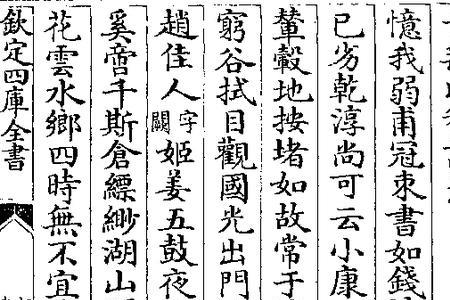 憶我弱甫冠束書如錢
已劣乾淳尚可云小康
輦轂地按堵如故常于
窮谷拭目觀國光出門
趙佳人闕字姬姜五鼓夜
奚啻千斯倉縹緲湖山
花雲水鄉四時無不宜
欽定四庫全書